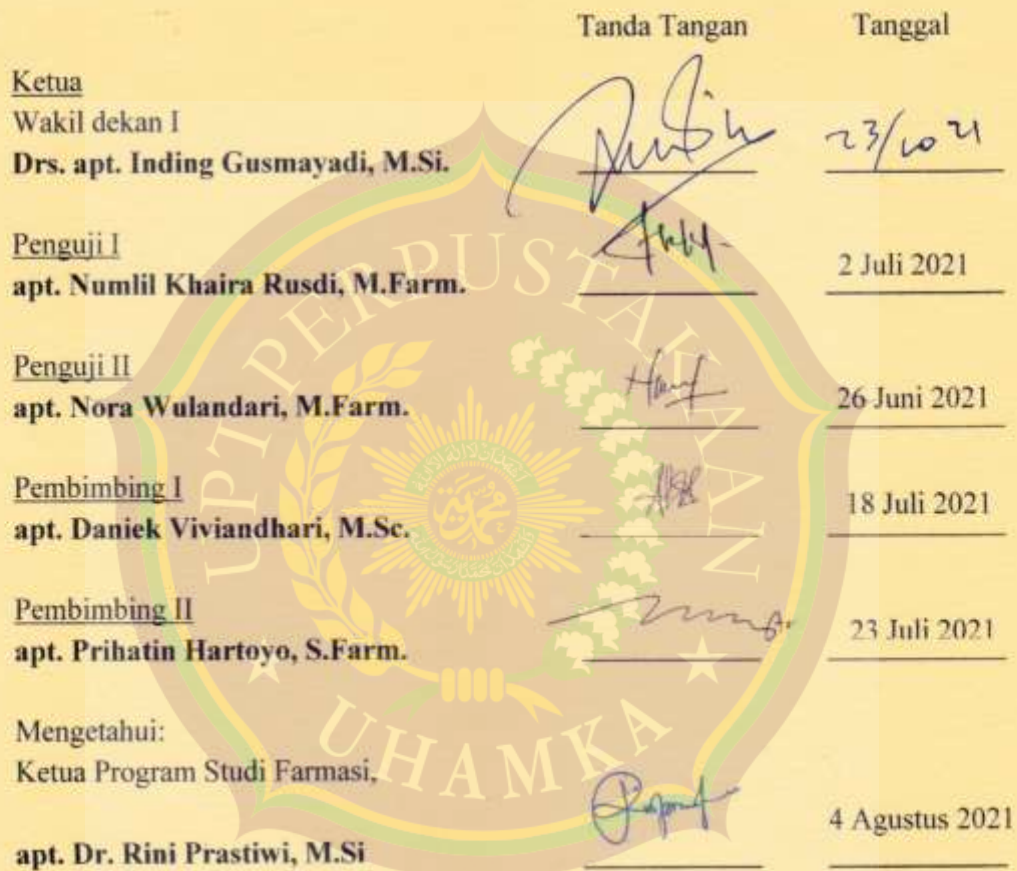 Tanda Tangan Tanggal
Ketua
Wakil dekan I
Drs. apt. Inding Gusmayadi, M.Si.
23/10 21
Penguji I
apt. Numlil Khaira Rusdi, M.Farm.
2 Juli 2021
Penguji II
apt. Nora Wulandari, M.Farm.
26 Juni 2021
Pembimbing I
apt. Daniek Viviandhari, M.Sc.
18 Juli 2021
Pembimbing II
apt. Prihatin Hartoyo, S.Farm.
23 Juli 2021
Mengetahui:
Ketua Program Studi Farmasi,
apt. Dr. Rini Prastiwi, M.Si
4 Agustus 2021
UPT PERPUSTAKAAN
UHAMKA